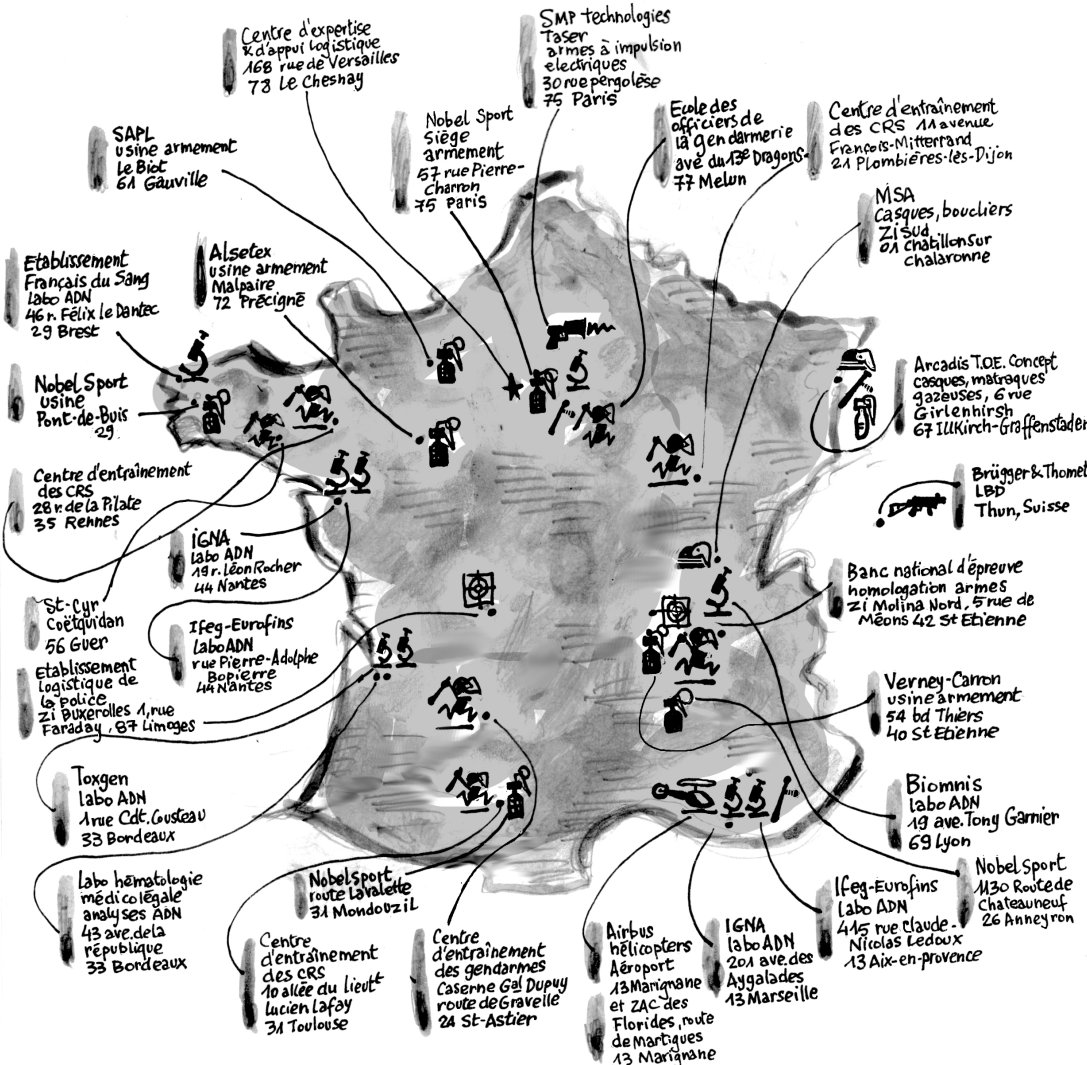 Centre d'expertise
& d'appui logistique
168 rue de Versailles
78 Le Chesnay
SMP technologies
Taser
armes à impulsion
electriques
30 rue pergolèse
75 Paris
SAPL
usine armement
Le Biot
61 Gauville
Nobel Sport
Siège
armement
57 rue Pierre-
Charron
75 Paris
Ecole des
officiers de
la gendarmerie
ave du 13e Dragons
77 Melun
Centre d'entraînement
des CRS 11 avenue
François-Mitterrand
21 Plombières-lès-Dijon
MSA
casques, boucliers
Zi Sud
01 Chatillon sur
Chalaronne
Etablissement
Français du Sang
labo ADN
46 r. Félix le Dantec
29 Brest
Alsetex
usine armement
Malpaire
72 Précigné
Nobel Sport
usine
Pont-de-Buis
29
Arcadis T.O.E. Concept
casques, matraques
gazeuses, 6 rue
Girlenhirsh
67 Illkirch-Graffenstaden
Centre d'entraînement
des CRS
28 r. de la Pilate
35 Rennes
Brügger & Thomet
LBD
Thun, Suisse
IGNA
labo ADN
19 r. Léon Rocher
44 Nantes
St-Cyr
Coëtquidan
56 Guer
Ifeg-Eurofins
labo ADN
rue Pierre-Adolphe
Bopierre
44 Nantes
Banc national d'épreuve
homologation armes
Zi Molina Nord, 5 rue de
Méons 42 St Etienne
Etablissement
logistique de
la police
Zi Buxerolles 1, rue
Faraday, 87 Limoges
Verney-Carron
usine armement
54 bd Thiers
40 St Etienne
Toxgen
labo ADN
1 rue Cdt. Cousteau
33 Bordeaux
Biomnis
labo ADN
19 ave. Tony Garnier
69 Lyon
Labo hématologie
médico légale
analyses ADN
43 ave. de la
république
33 Bordeaux
Nobel sport
route Lavalette
31 Mondouzil
Nobel Sport
1130 Route de
Chateauneuf
26 Anneyron
Ifeg-Eurofins
labo ADN
415 rue Claude-
Nicolas Ledoux
13 Aix-en-provence
Centre
d'entraînement
des CRS
10 allée du lieutt
Lucien Lafay
31 Toulouse
Centre
d'entraînement
des gendarmes
Caserne Gal Dupuy
route de Gravelle
24 St-Astier
Airbus
hélicopters
Aéroport
13 Marignane
et ZAC des
Florides, route
de Martigues
13 Marignane
IGNA
labo ADN
201 ave. des
Aygalades
13 Marseille